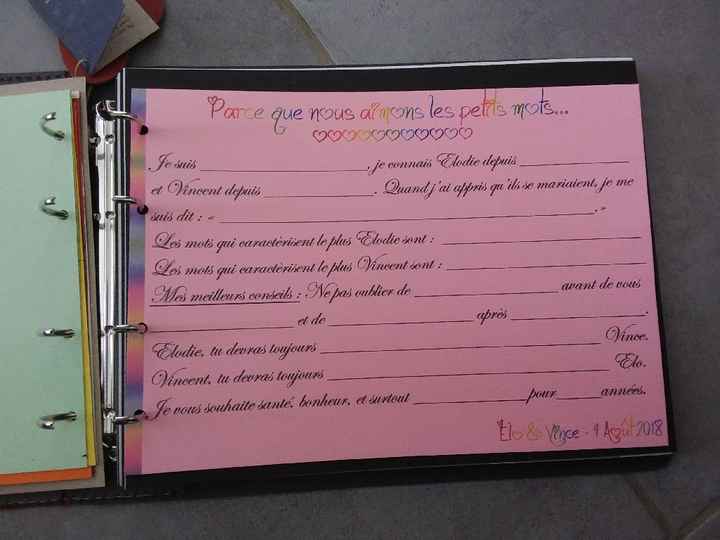 Parce que nous aimons les petits mots...
Je suis ____________________, je connais Elodie depuis ____________________
et Vincent depuis ____________________. Quand j'ai appris qu'ils se mariaient, je me
suis dit : « ____________________. »
Les mots qui caractérisent le plus Elodie sont : ____________________
Les mots qui caractérisent le plus Vincent sont : ____________________
Mes meilleurs conseils : Ne pas oublier de ____________________ avant de vous
____________________ et de ____________________ après ____________________.
Elodie, tu devras toujours ____________________ Vince.
Vincent, tu devras toujours ____________________ Elo.
Je vous souhaite santé, bonheur, et surtout ____________________ pour _____ années.
Elo & Vince - 4 Août 2018